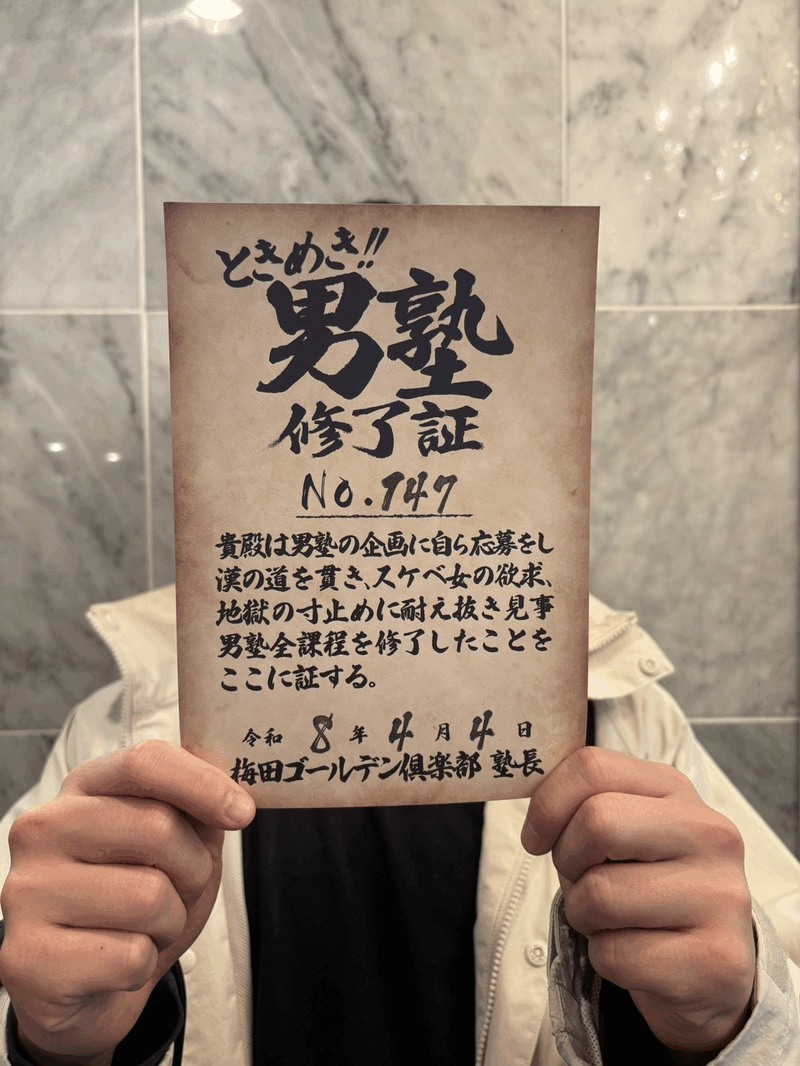 ときめき!!
男塾
修了証
No.147
貴殿は男塾の企画に自ら応募をし
漢の道を貫き、スケベ女の欲求、
地獄の寸止めに耐え抜き見事
男塾全課程を修了したことを
ここに証する。
令和 8 年 4 月 4 日
梅田ゴールデン倶楽部 塾長